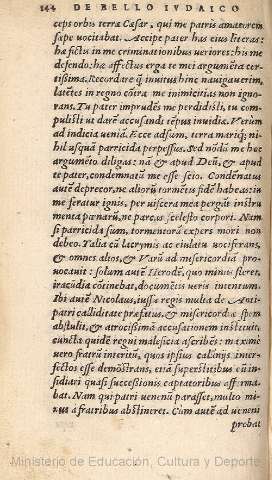 144 DE BELLO IVDAICO
ceps orbis terra Cæsar, qui me patris amatorem
sæpe vocitabat. Accipe pater has eius literas:
hæ fictis in me criminationibus veriores: his me
defendo: hæ affectus erga te mei argumēta cer-
tissima. Recordare q̃ inuitus hinc nauigauerim,
latētes in regno cōtra me inimicitias non igno-
rans. Tu pater imprudēs me perdidisti, tu com-
pulisti ut darē accusandi tēpus inuidiæ. Verùm
ad indicia veniā. Ecce adsum, terra mariq; ni-
hil usquā parricida perpessus. Sed nōdū me hoc
argumēto diligas: nā & apud Deū, & apud
te pater, condemnatū me esse scio. Condēnatus
autē deprecor, ne aliorū tormētis fidē habeas: in
me feratur ignis, per viscera mea pergāt instru
menta pœnarū, ne parcas scelesto corpori. Nam
si parricida sum, tormentorū expers mori non
debeo. Talia cū lacrymis ac eiulatu vociferans,
& omnes alios, & Varū ad misericordiā pro-
uocauit: solum autē Herodē, quo minùs fleret,
iracūdia cōtinebat, documētis veris intentum.
Ibi autē Nicolaus, iussu regis multa de Anti-
patri calliditate præfatus, & misericordiæ spem
abstulit, & atrocissimā accusationem instituit,
cuncta quidē regni malesicia ascribēs: maximè
vero fratrū interitū, quos ipsius calūnijs inter-
fectos esse demōstrans, etiā superstitibus eū in-
sidiari quasi successionis captatoribus affirma
bat. Nam qui patri venenū parasset, multo mi-
nus a fratribus abstineret. Cùm autē ad veneni
probat
Ministerio de Educación, Cultura y Deporte